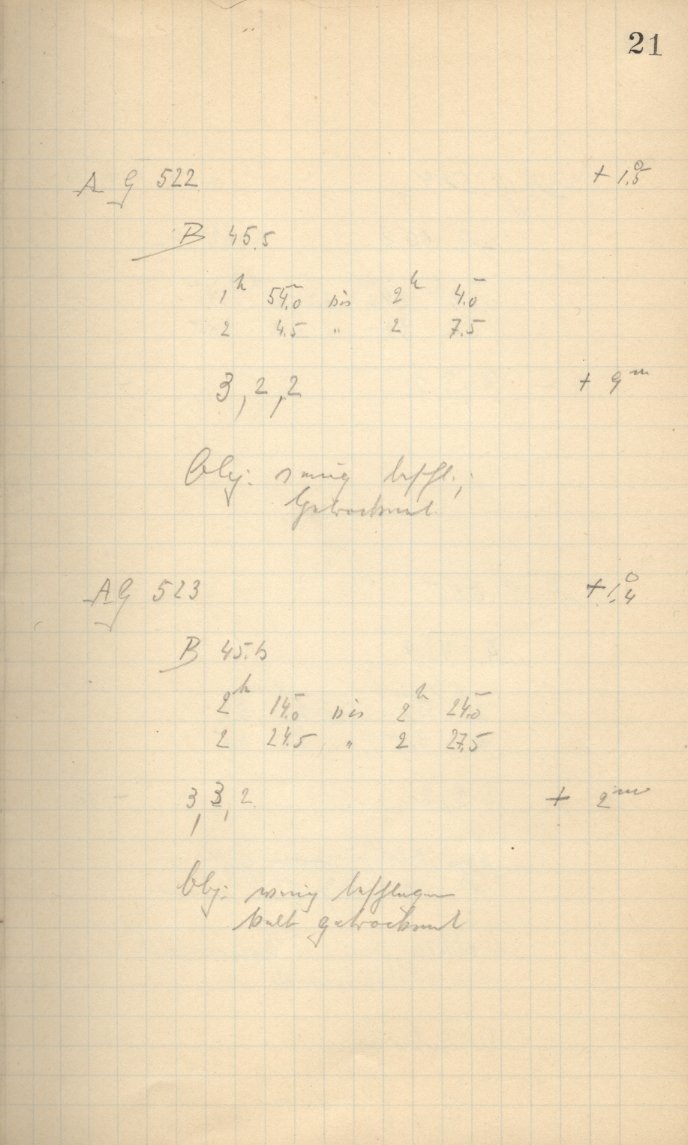 21
A G 522 + 1.°5
B 45.5
1h 54.0 bis 2h 4.0
2 4.5 " 2 7.5
3, 2, 2 + 9m
Obj: wenig beschl.,
Getrocknet.
AG 523 + 1.°4
B 45.5
2h 14.0 bis 2h 24.0
2 24.5 " 2 27.5
3, 3, 2 + 2m
Obj: wenig beschlagen
kalt getrocknet